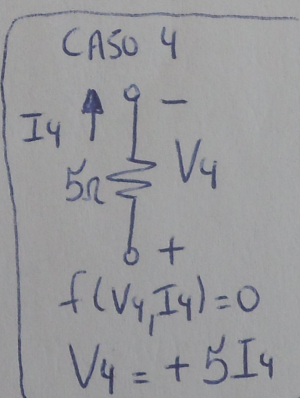 CASO 4
−
I4
5Ω
V4
+
f(V4, I4) = 0
V4 = + 5I4